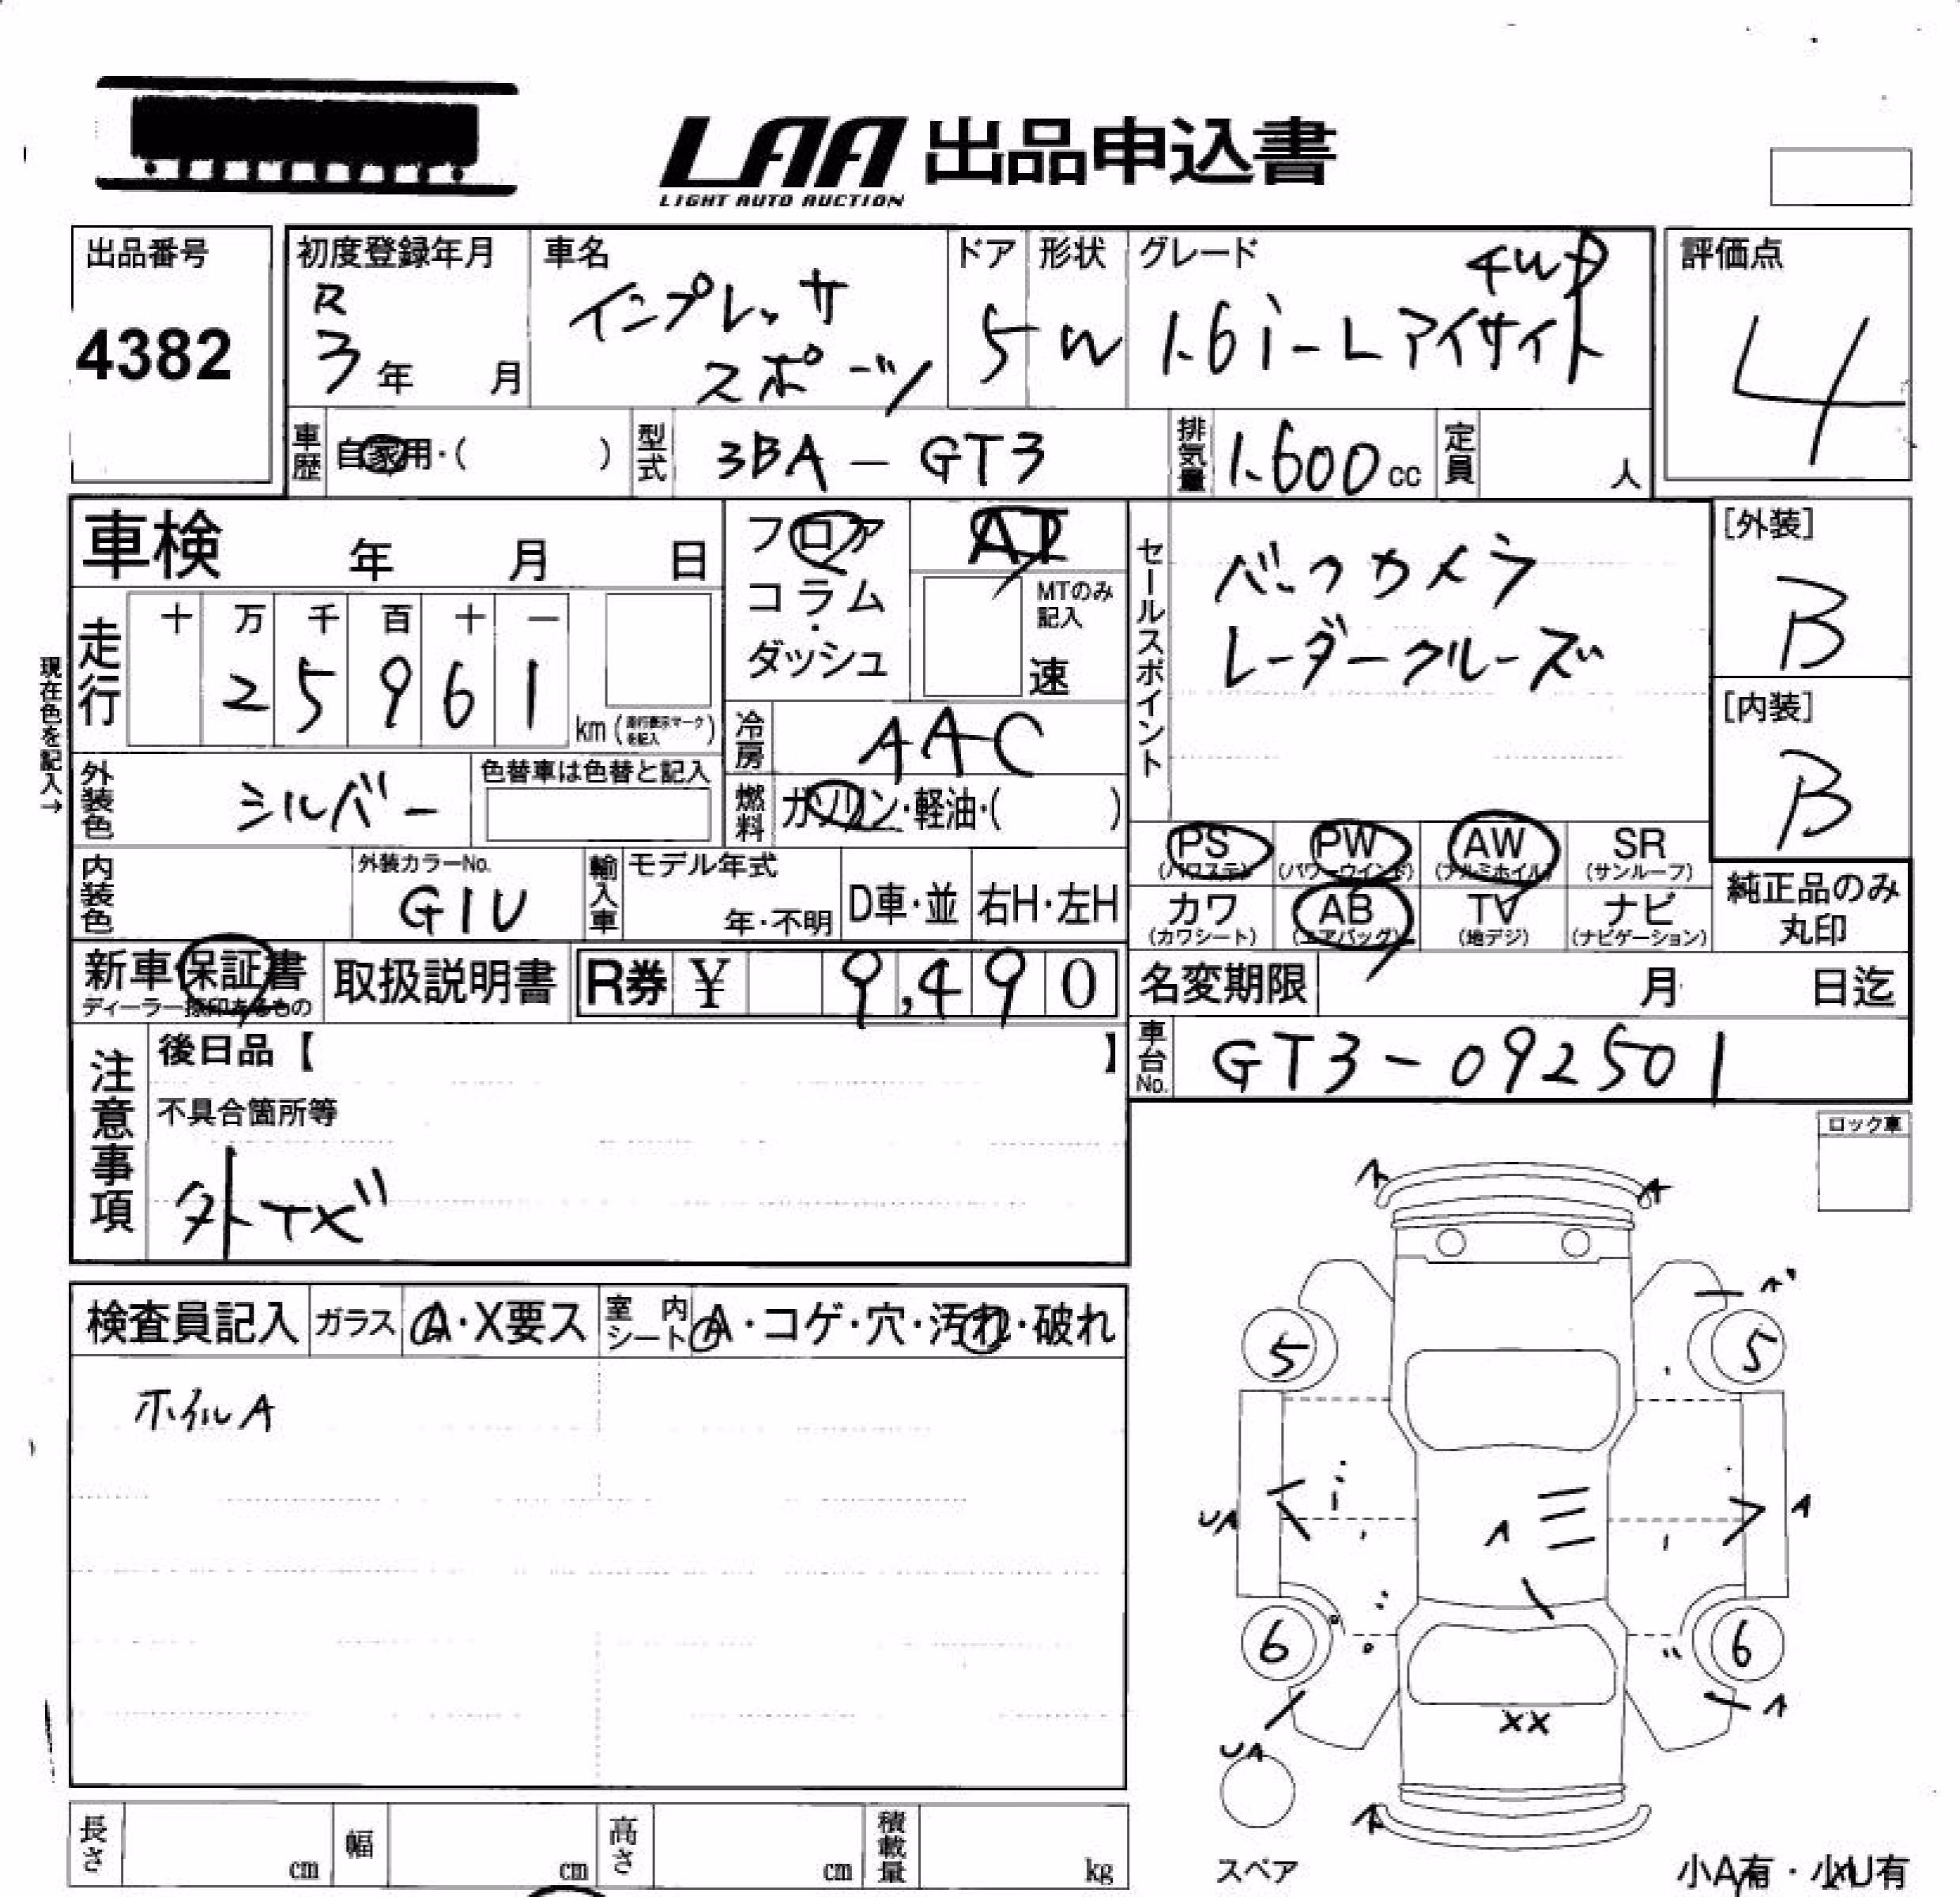 LAA 出品申込書
LIGHT AUTO AUCTION
出品番号
4382
初度登録年月
R
3年 月
車名
インプレッサ
スポーツ
ドア
5
形状
W
グレード
4WD
1.6i-Lアイサイト
評価点
4
車歴
自家用・( )
型式
3BA-GT3
排気量
1.600cc
定員
人
車検 年 月 日
フロア
コラム
・
ダッシュ
AT
MTのみ
記入
速
セールスポイント
バックカメラ
レーダークルーズ
[外装]
B
[内装]
B
現在色を記入→
走行
十 万 千 百 十 一
2 5 9 6 1
km(走行表示マークを記入)
冷房
AAC
外装色
シルバー
色替車は色替と記入
燃料
ガソリン・軽油・( )
PS
(パワステ)
PW
(パワーウインド)
AW
(アルミホイル)
SR
(サンルーフ)
内装色
外装カラーNo.
G1U
輸入車
モデル年式
年・不明
D車・並
右H・左H
カワ
(カワシート)
AB
(エアバッグ)
TV
(地デジ)
ナビ
(ナビゲーション)
純正品のみ
丸印
新車保証書
ディーラー捺印あるもの
取扱説明書
R券 ¥ 9,490
名変期限 月 日迄
注意事項
後日品【 】
車台No.
GT3-092501
不具合箇所等
外TX"
ロック車
検査員記入
ガラス
A・X要ス
室内
シート
A・コゲ・穴・汚れ・破れ
ホイルA
A
A
A
5
5
UA
A
A
6
6
A
XX
UA
A
スペア
長さ
cm
幅
cm
高さ
cm
積載量
kg
小A有・小U有